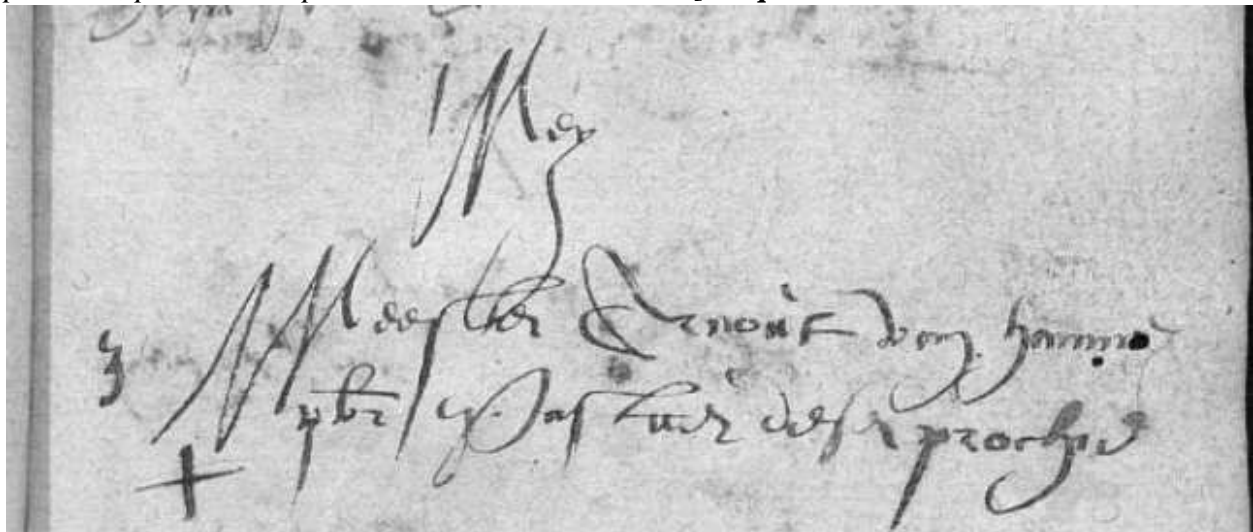 Mey
3 Meester Arnout van hamme
+ pbr Pastuer deser prochie